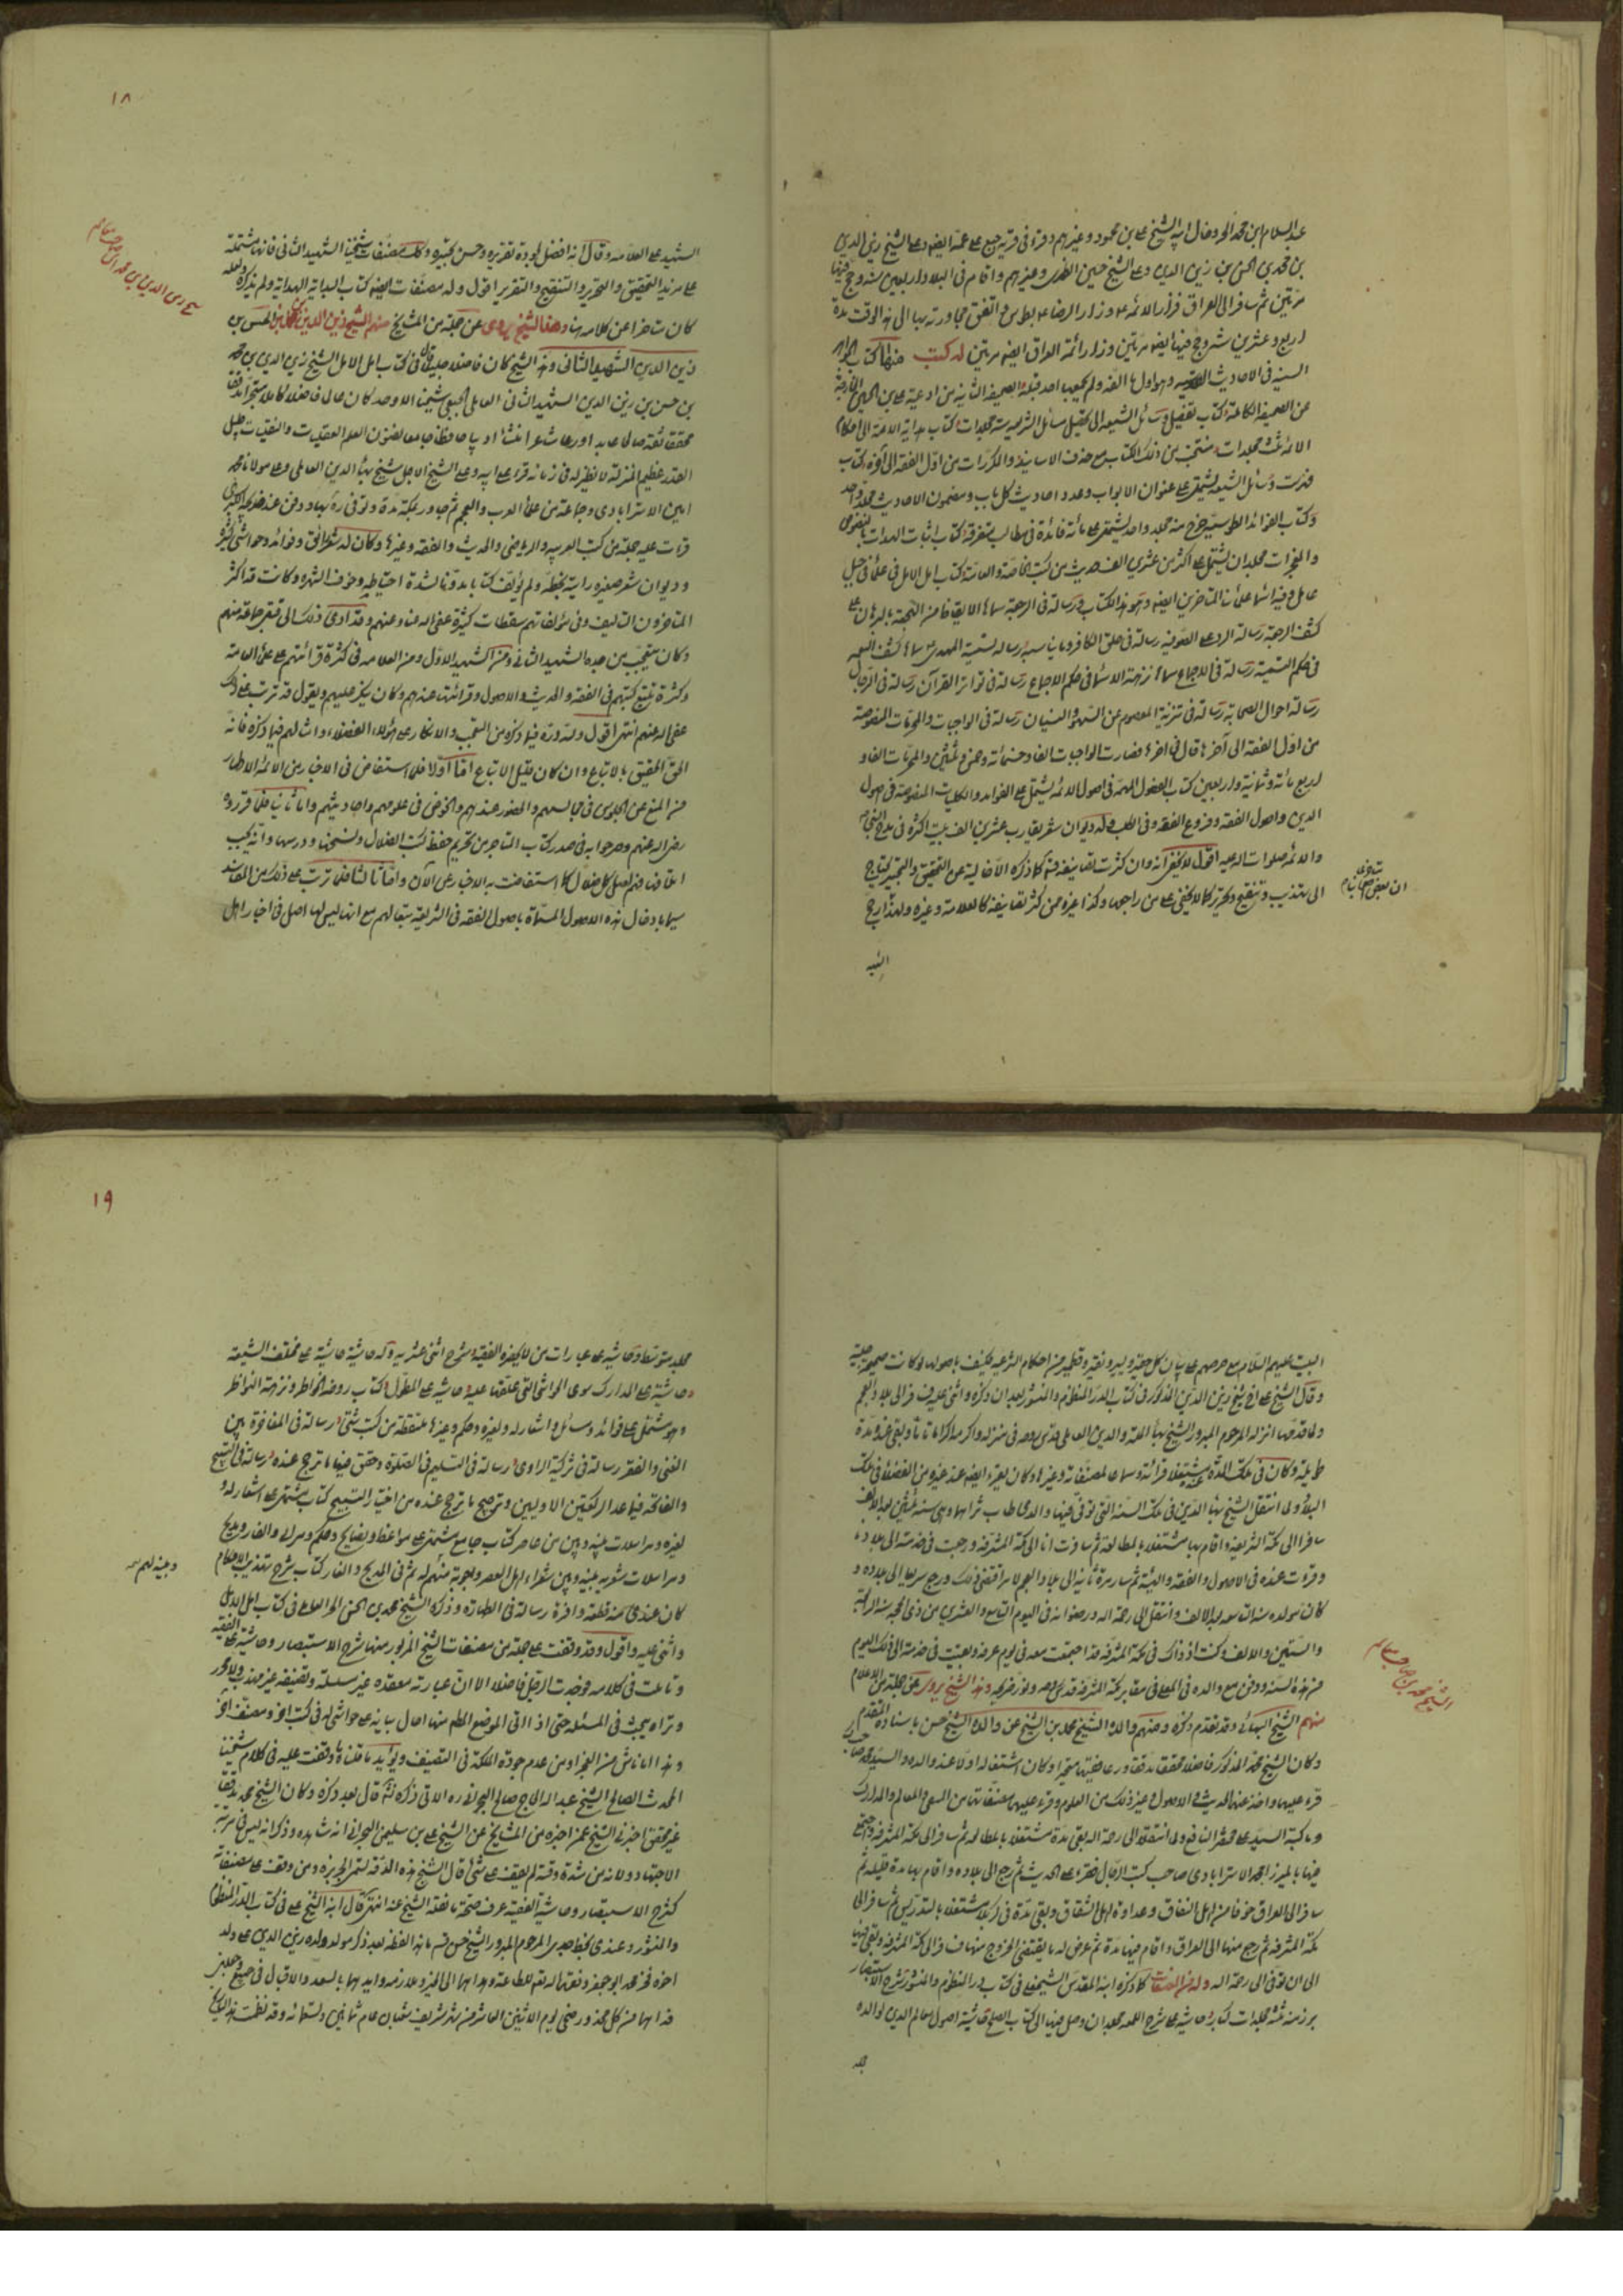 عبد السلام ابن محمد الحر وخال ابيه الشيخ علي بن محمود وغيرهم وقرأ في قرية جبع على عمه ايضا وعلى الشيخ زين الدين
بن محمد بن الحسن بن زين الدين وعلى الشيخ حسين الظهيري وغيرهم واقام في البلاد اربعين سنة وحج فيها
مرتين ثم سافر الى العراق فزار الائمة ع وزار الرضا ع بطوس واتفق مجاورته بها الى هذا الوقت مدة
اربع وعشرين سنة وحج فيها ايضا مرتين وزار ائمة العراق ايضا مرتين له كتب منها كتاب الجواهر
السنية في الاحاديث القدسية وهو اول ما الفه ولم يجمعها احد قبله والصحيفة الثانية من ادعية علي بن الحسين الخارجة
عن الصحيفة الكاملة وكتاب تفصيل وسائل الشيعة الى تحصيل مسائل الشريعة ستة مجلدات وكتاب هداية الامة الى احكام
الائمة ثلث مجلدات منتخب من ذلك الكتاب مع حذف الاسانيد والمكررات من اول الفقه الى آخره وكتاب
فهرست وسائل الشيعة يشتمل على عنوان الابواب وعدد احاديث كل باب ومضمون الاحاديث مجلد واحد
وكتاب الفوائد الطوسية خرج منه مجلد واحد يشتمل على مائة فائدة في مطالب متفرقة وكتاب اثبات الهداة بالنصوص
والمعجزات مجلدان يشتمل على اكثر من عشرين الف حديث من كتب الخاصة والعامة وكتاب امل الآمل في علماء جبل
عامل وفيه اسماء علمائنا المتأخرين ايضا وهو هذا الكتاب ورسالة في الرجعة سماها الايقاظ من الهجعة بالبرهان على
كشف الرجعة رسالة الرد على الصوفية رسالة في خلق الكافر وما يناسبه رسالة تسمية المهدي ع سماها كشف التعمية
في حكم التسمية رسالة في الاجماع سماها نزهة الاسماع في حكم الاجماع رسالة في تواتر القرآن رسالة في الرجال
رسالة احوال الصحابة رسالة في تنزيه المعصوم عن السهو والنسيان رسالة في الواجبات والمحرمات المنصوصة
من اول الفقه الى آخرها قال في اخرها فصارت الواجبات الفا وخمسمائة وخمس وثلثين والمحرمات الفا و
اربعمائة وثمانية واربعين كتاب الفصول المهمة في اصول الائمة يشتمل على القواعد والكليات المنصوصة في اصول
الدين واصول الفقه وفروع الفقه وفي الطب وله ديوان شعر يقارب عشرين الف بيت اكثره في مدح النبي ص
والائمة صلوات الله عليهم اقول لا يخفى انه وان كثرت تصانيفه قده كما ذكره الا انها خالية عن التحقيق والتحبير تحتاج
الى تهذيب وتنقيح وتحرير كما لا يخفى على من راجعها وكذا غيره ممن كثر تصانيفه كالعلامة وغيره ولهذا رجح
الشهيد
ان بعض مشايخنا
الشهيد على العلامة وقال انه افضل لجودة تقريره وحسن تحبيره وكذلك مصنفات شيخنا الشهيد الثاني فانها مشتملة
على مزيد التحقيق والتحرير والتنقيح والتقرير اقول وله مصنفات ايضا كتاب البداية الهداية ولم يذكره ولعله
كان متأخرا عن كلامه هنا وهذا الشيخ يروي عن جملة من المشايخ منهم الشيخ زين الدين بن محمد بن الحسن بن
زين الدين الشهيد الثاني وهذا الشيخ كان فاضلا جليلا قال في كتاب امل الآمل الشيخ زين الدين بن محمد
بن حسن بن زين الدين الشهيد الثاني العاملي الجبعي شيخنا الاوحد كان عالما فاضلا كاملا متبحرا مدققا
محققا ثقة صالحا عابدا ورعا شاعرا منشئا اديبا حافظا جامعا لفنون العلم العقليات والنقليات جليل
القدر عظيم المنزلة لا نظير له في زمانه قرأ على ابيه وعلى الشيخ الاجل شيخ بهاء الدين العاملي وعلى مولانا محمد
امين الاسترابادي وجماعة من علماء العرب والعجم ثم جاور بمكة مدة وتوفي ره بها ودفن عند خديجة الكبرى
قرأت عليه جملة من كتب العربية والرياضي والحديث والفقه وغيرها وكان له شعر رائق وفوائد وحواشي كثيرة
وديوان شعر صغير رأيته بخطه ولم يؤلف كتابا مدونا لشدة احتياطه وخوف الشهرة وكانت قد اكثر
المتأخرون التأليف وفي مؤلفاتهم سقطات كثيرة عفى الله عنا وعنهم وقد ادى ذلك الى قتل جماعة منهم
وكان يتعجب من جده الشهيد الثاني ومن الشهيد الاول ومن العلامة في كثرة قرائتهم على علماء العامة
وكثرة تتبع كتبهم في الفقه والحديث والاصول وقرائتها عندهم وكان ينكر عليهم ويقول قد ترتب على ذلك
عفى الله عنهم انتهى اقول ولله دره فيما ذكره من التعجب والانكار على هؤلاء الفضلاء وامثالهم فيما ذكره فانه
الحق الحقيق بالاتباع وان كان قليل الاتباع اما اولا فلما استفاض في الاخبار من الائمة الاطهار
من المنع عن الجلوس في مجالسهم والحضور عندهم والخوض في علومهم واحاديثهم واما ثانيا فلما قرره
رضي الله عنهم وصرحوا به في صدر كتاب المتاجر من تحريم حفظ كتب الضلال ونسخها ودرسها وانه يجب
اتلافها فهم اصل كل ضلال كما استفاضت به الاخبار عن الآل واما ثالثا فلما ترتب على ذلك من المفاسد
سيما بادخال هذه الاصول المسماة باصول الفقه في الشريعة متابعا لهم مع انها ليس لها اصل في اخبار اهل
١٨
البيت عليهم السلام مع حرصهم على بيان كل جليل وحقير ونقير وقطمير من احكام الشرعية فكيف باصولها لو كانت صحيحة جلية
وقال الشيخ علي اخو شيخ زين الدين المذكور في كتاب الدر المنظوم والمنثور بعد ان ذكره واثنى عليه سافر الى بلاد العجم
ولما قدمها انزله المرحوم المبرور الشيخ بهاء الملة والدين العاملي قدس روحه في منزله واكرمه اكراما تاما وبقي عنده مدة
طويلة وكان في تلك المدة مشتغلا عنده قرائة وسماعا لمصنفاته وغيرها وكان يقرء ايضا عند غيره من الفضلاء في تلك
البلاد ولما انتقل الشيخ بهاء الدين في تلك السنة التي توفي فيها والدي طاب ثراهما وهي سنة ثلثين بعد الالف
سافر الى مكة الشريفة واقام بها مشتغلا بالمطالعة ثم سافرت انا الى مكة المشرفة ورجعت في خدمته الى بلادنا
وقرأت عنده في الاصول والفقه والهيئة ثم سافر مرة ثانية الى بلاد العجم لامر اقتضى ذلك ورجع سريعا الى بلاده و
كان مولده سنة تسعة بعد الالف وانتقل الى رحمة الله ورضوانه في اليوم التاسع والعشرين من ذي الحجة سنة الرابعة
والستين والالف وكنت اذ ذاك في مكة المشرفة فاجتمعت معه في يوم عرفة وبقيت في خدمته الى ذلك اليوم
من هذه السنة ودفن مع والده في المعلى في مقابر مكة المشرفة قدس روحه ونور ضريحه وهذا الشيخ يروي عن جملة من الاعلام
منهم الشيخ البهائي وقد تقدم ذكره ومنهم والده الشيخ محمد بن الشيخ عن والده الشيخ حسن باسناده المتقدم
وكان الشيخ محمد المذكور فاضلا محققا مدققا ورعا فقيها متبحرا وكان اشتغاله اولا عند والده والسيد محمد صاحب
قرء عليهما واخذ عنهما الحديث والاصول وغير ذلك من العلوم وقرء عليهما مصنفاتهما من المنتقى والمعالم والمدارك
وما كتبه السيد على مختصر النافع ولما انتقلا الى رحمة الله بقي مدة مشتغلا بالمطالعة ثم سافر الى مكة المشرفة واجتمع
فيها بالميرزا محمد الاسترابادي صاحب كتب الرجال فقرء عليه الحديث ثم رجع الى بلاده واقام بها مدة قليلة ثم
سافر الى العراق خوفا من اهل النفاق وعداوة اهل الشقاق وبقي مدة في كربلا مشتغلا بالتدريس ثم سافر الى
مكة المشرفة ثم رجع منها الى العراق واقام فيها مدة ثم عرض له ما يقتضي الخروج منها فسافر الى مكة المشرفة وبقي فيها
الى ان توفي الى رحمة الله وله من المصنفات كما ذكره ابنه المقدس الشيخ علي في كتاب الدر المنظوم والمنثور شرح الاستبصار
برز منه ثلثة مجلدات كبار وحاشية على شرح اللمعة مجلدان وصل فيها الى كتاب الصلح وحاشية اصول معالم الدين لوالده
مجلد
الشيخ محمد بن صاحب المعالم
مجلد متوسط وحاشية على عبارات من لا يحضره الفقيه وشرح اثنى عشرية وله حاشية حاشية على مختلف الشيعة
وحاشية على المدارك سوى الحواشي التي علقها عليه وحاشية على المطول وكتاب روضة الخواطر ونزهة النواظر
وهو مشتمل على فوائد ومسائل واشعار له ولغيره وحكم وغيرها ملتقطة من كتب شتى ورسالة في المفاخرة بين
الغنى والفقر ورسالة في تزكية الراوي ورسالة في التسليم في الصلوة وحقق فيها ما ترجح عنده ورسالة في التسبيح
والفاتحة فيما عدا الركعتين الاوليين وترجيح ما ترجح عنده من اختيار التسبيح وكتاب مشتمل على اشعار له و
لغيره ومراسلات بينه وبين من عاصره كتاب جامع مشتمل على مواعظ ونصايح وحكم ومراثي والغاز ومديح
ومراسلات شعرية بينه وبين شعراء اهل العصر واجوبة منهم له شعر في المديح والغاز وكتاب شرح تهذيب الاحكام
كان عندي منه قطعة وافرة رسالة في الطهارة وذكره الشيخ محمد بن الحسن الحر العاملي في كتاب امل الآمل
واثنى عليه واقول وقد وقفت على جملة من مصنفات الشيخ المزبور منها شرح الاستبصار وحاشيته على الفقيه
وتأملت في كلامه فوجدت الرجل فاضلا الا ان عبارته معقدة غير سلسلة وتصنيفه غير مهذب ولا محرر
وتراه يبحث في المسئلة حتى اذا اتى الموضع المطلوب منها احال بيانه على حواشي له في كتب اخر ومصنف آخر
وهذا اما ناش من الضجر او من عدم جودة الملكة في التصنيف ويؤيد ما قلناه ما وقفت عليه في كلام شيخنا
المحدث الصالح الشيخ عبد الله الحاج صالح البحراني ره الآتي ذكره ثمة قال بعد ذكره وكان الشيخ محمد مدققا
غير محقق اخبرني الشيخ عمن اخبره من المشايخ عن الشيخ علي بن سليمان البحراني انه شاهده وذكر انه ليس في مرتبة
الاجتهاد ولانه من شدة دقته لم يقف على شئ قال الشيخ هذه الدقة لتمر الجربزة ومن وقف على مصنفاته
كشرح الاستبصار وحاشية الفقيه عرف صحة ما نقله الشيخ عنه انتهى قال ابنه الشيخ علي في كتاب الدر المنظوم
والمنثور وعندي بخط جدي المرحوم المبرور الشيخ حسن قده ما هذا لفظه بعد ذكر مولد ولده زين الدين علي ولد
اخوه فخر محمد ابو جعفر وفقهما الله تعالى لطاعته وهداهما الى الخير وملازمته وايدهما بالسعد والاقبال في جميع
فداهما من كل محذور ضحى يوم الاثنين العاشر من شهر شريف شعبان عام ثمانين وتسعمائة وقد نظمت هذا التاريخ
١٩